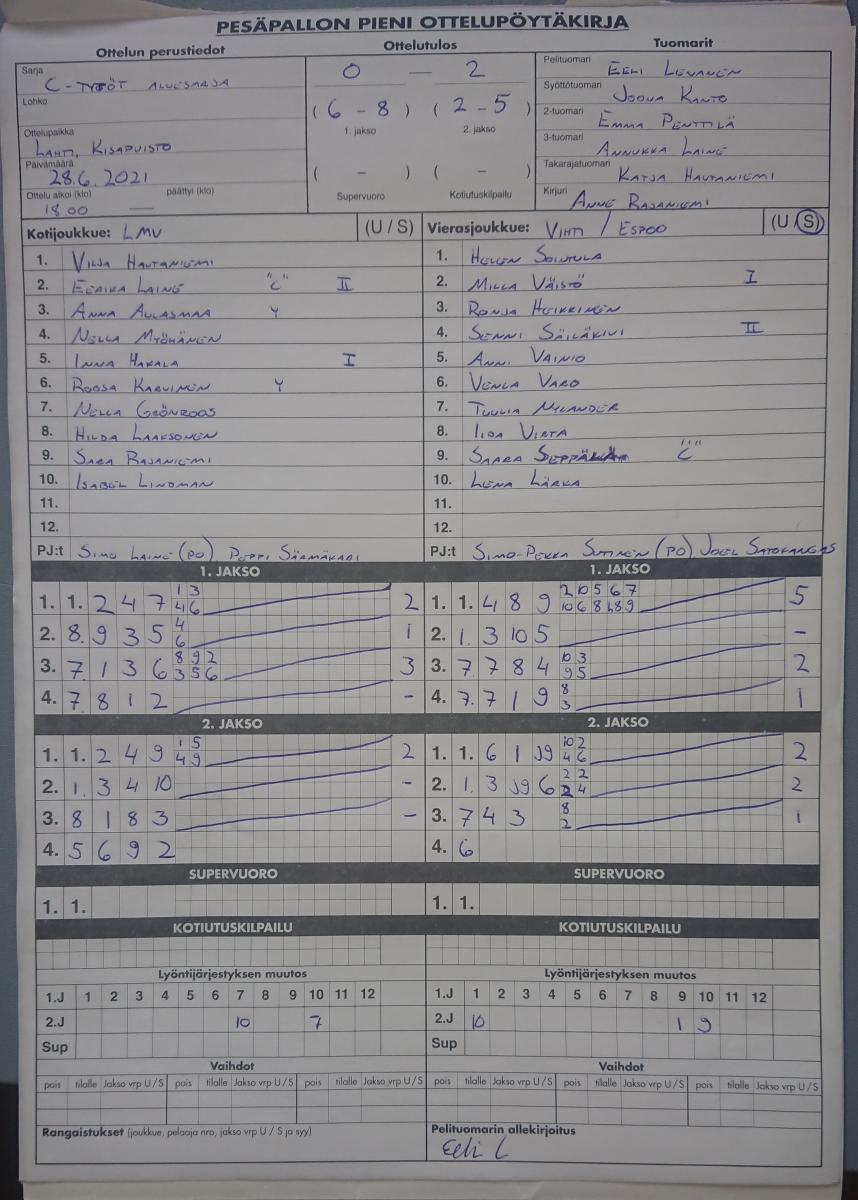 PESÄPALLON PIENI OTTELUPÖYTÄKIRJA
Ottelun perustiedot
Sarja
C-TYTÖT ALUESARJA
Lohko
Ottelupaikka
LAHTI, KISAPUISTO
Päivämäärä
28.6.2021
Ottelu alkoi (klo) päättyi (klo)
18.00 —
Ottelutulos
0 — 2
(6 - 8) (2 - 5)
1. jakso 2. jakso
( - ) ( - )
Supervuoro Kotiutuskilpailu
Tuomarit
Pelituomari EELI LEVANEN
Syöttötuomari JOONA KANTO
2-tuomari EMMA PENTTILÄ
3-tuomari ANNUKKA LAINE
Takarajatuomari KATJA HAUTANIEMI
Kirjuri ANNE RAJANIEMI
Kotijoukkue: LMV (U / S)
1. VILJA HAUTANIEMI
2. EERIKA LAINE "C" II
3. ANNA AULASMAA Y
4. NELLA MYÖHÄNEN
5. INNA HAKALA I
6. ROOSA KARVINEN Y
7. NELLA GRÖNROOS
8. HILDA LAAKSONEN
9. SARA RAJANIEMI
10. ISABEL LINDMAN
11.
12.
PJ:t SIMO LAINE (PO) PEPPI SÄRMÄKARI
Vierasjoukkue: VIHTI / ESPOO (U / S)
1. HELLEN SOINTULA
2. MILLA VÄISTÖ I
3. RONJA HEIKKINEN
4. SENNI SÄILÄKIVI II
5. ANNI VAINIO
6. VENLA VARO
7. TUULIA NYLANDER
8. IIDA VIRTA
9. SAARA SEPPÄLÄ "C"
10. LENA LÄRKA
11.
12.
PJ:t SIMO-PEKKA SUTINEN (PO) JOEL SATOKANGAS
1. JAKSO
1. 1. 2 4 7 1 3 2
4 6
2. 8. 9 3 5 4 1
6
3. 7 1 3 6 8 9 2 3
3 5 6
4. 7. 8 1 2 -
2. JAKSO
1. 1. 2 4 9 1 5 2
4 9
2. 1. 3 4 10 -
3. 8 1 8 3 -
4. 5 6 9 2
SUPERVUORO
1. 1.
KOTIUTUSKILPAILU
Lyöntijärjestyksen muutos
1.J 1 2 3 4 5 6 7 8 9 10 11 12
2.J 10 7
Sup
Vaihdot
pois tilalle Jakso vrp U / S pois tilalle Jakso vrp U / S pois tilalle Jakso vrp U / S
Rangaistukset (joukkue, pelaaja nro, jakso vrp U / S ja syy)
1. JAKSO
1. 1. 4 8 9 2 10 5 6 7 5
10 6 8 9
2. 1. 3 10 5 -
3. 7 7 8 4 10 3 2
9 5
4. 7. 7 1 9 8 1
3
2. JAKSO
1. 1. 6 1 J9 10 2 2
4 6
2. 1. 3 J9 6 2 2 2
2 4
3. 7 4 3 8 1
2
4. 6
SUPERVUORO
1. 1.
KOTIUTUSKILPAILU
Lyöntijärjestyksen muutos
1.J 1 2 3 4 5 6 7 8 9 10 11 12
2.J 10 1 9
Sup
Vaihdot
pois tilalle Jakso vrp U / S pois tilalle Jakso vrp U / S pois tilalle Jakso vrp U / S
Pelituomarin allekirjoitus
Eeli L